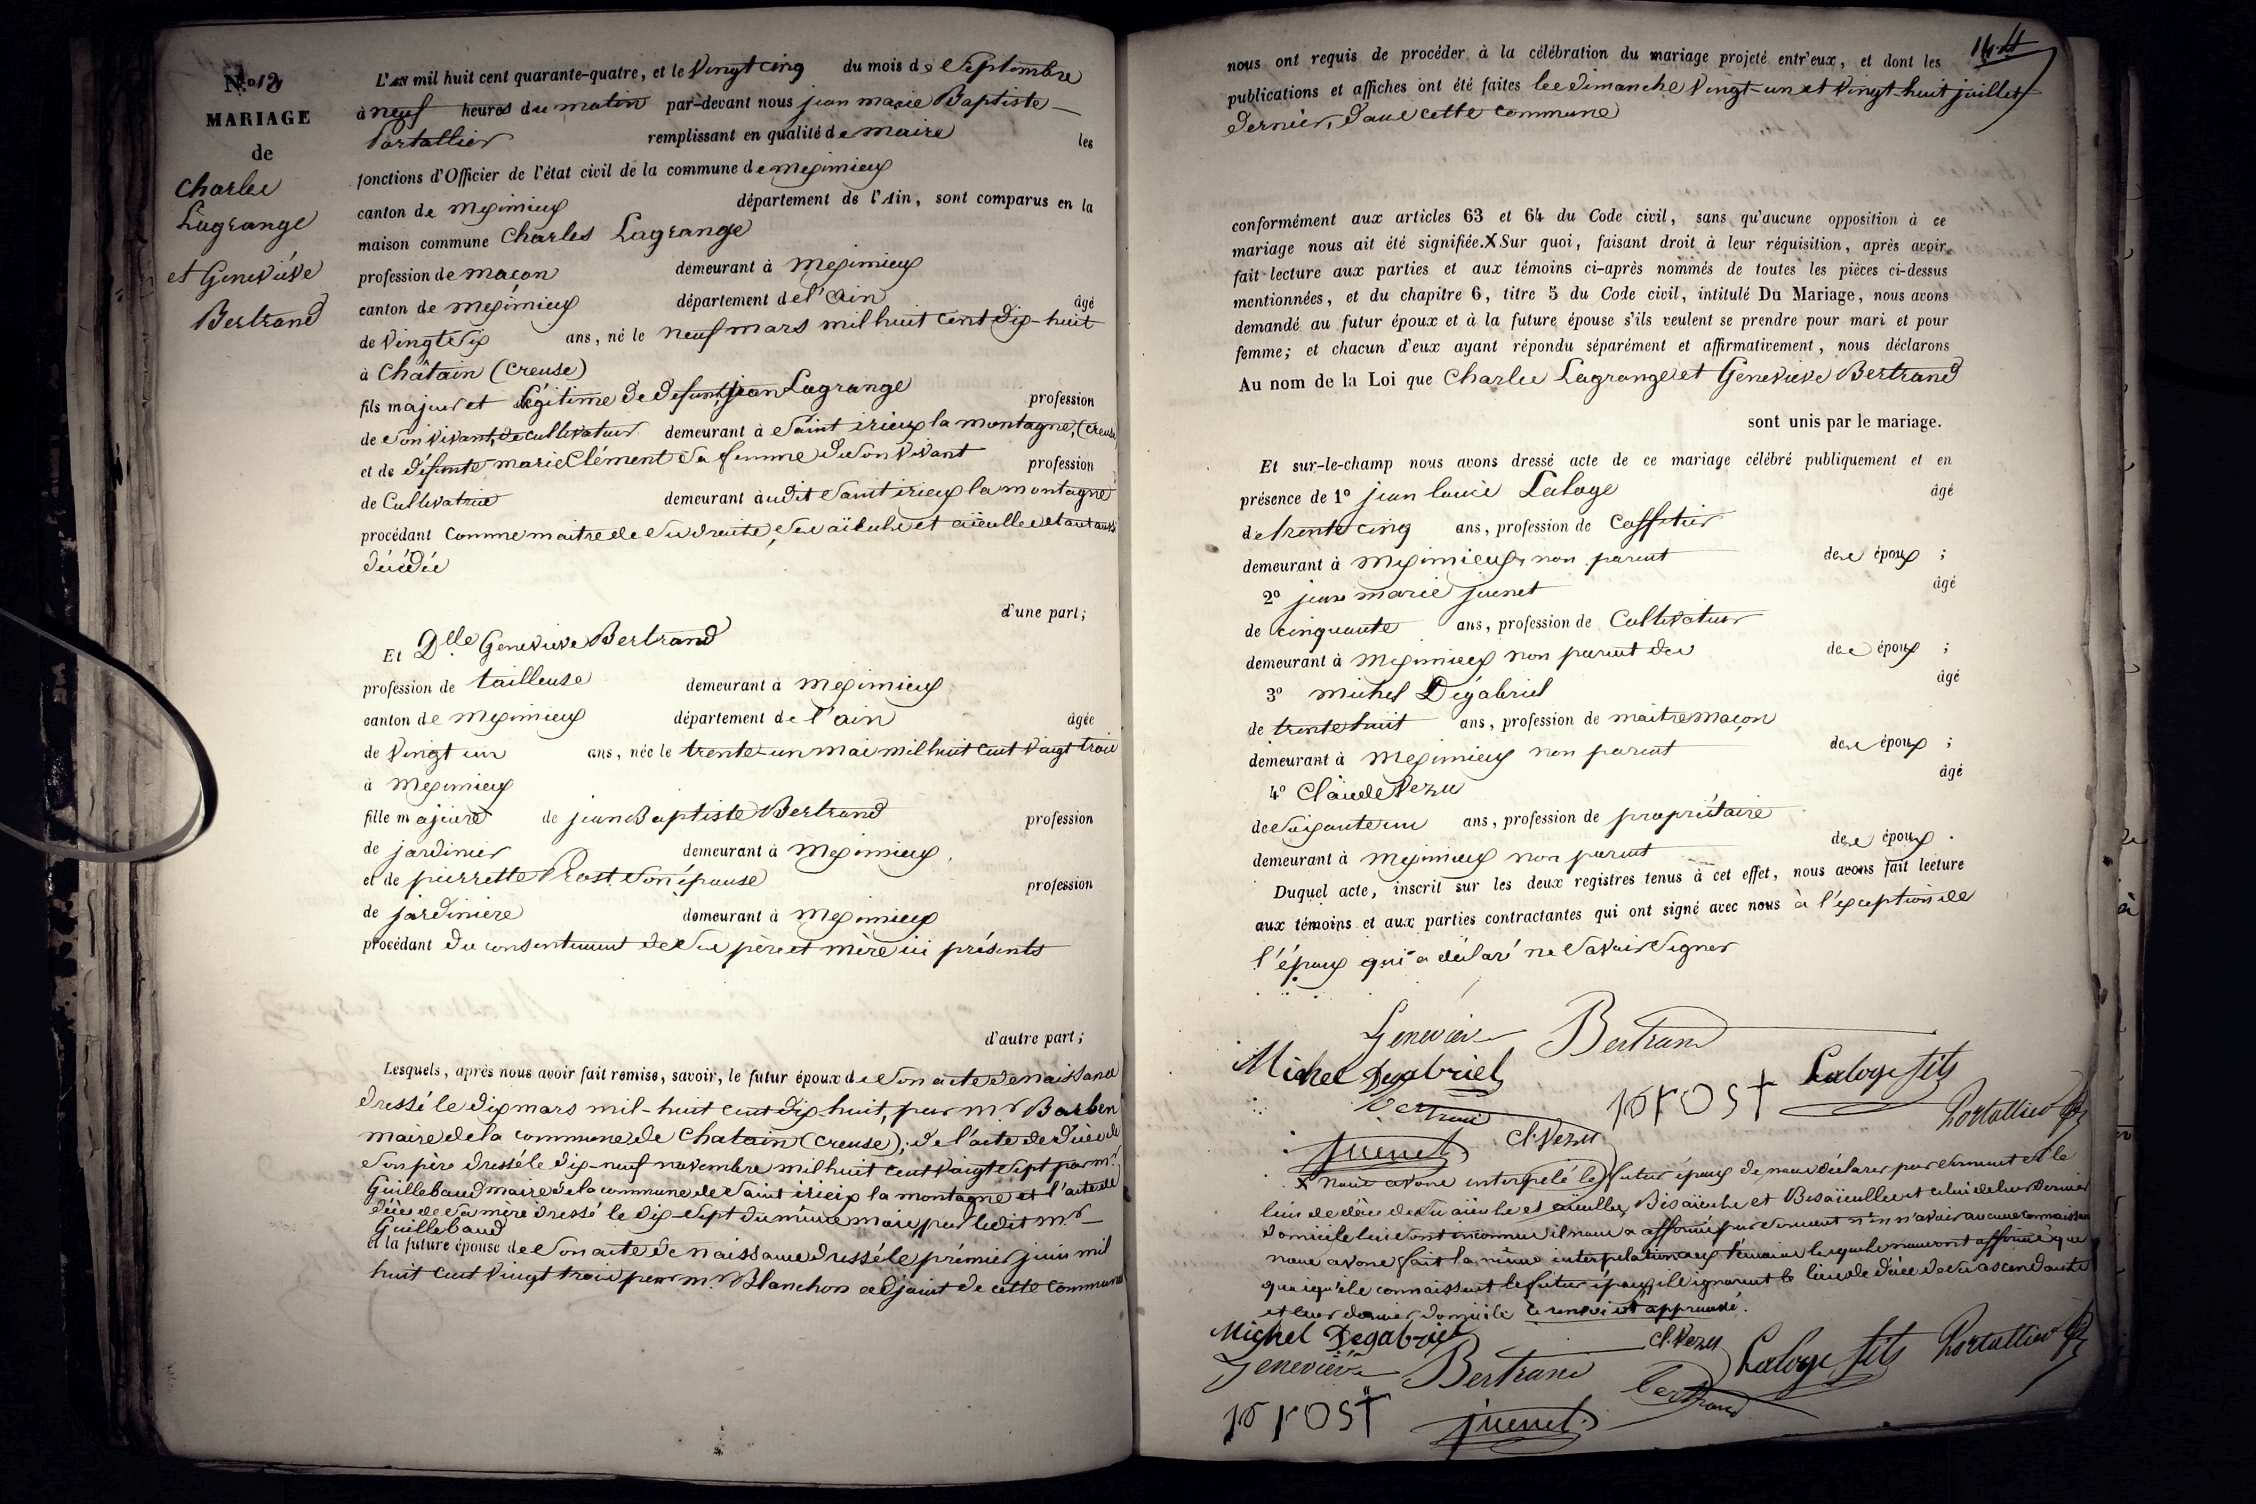 N.º 12
MARIAGE
de
Charles
Lagrange
et Geneviève
Bertrand
L'AN mil huit cent quarante-quatre, et le Vingt cinq du mois de Septembre
à neuf heures du matin par-devant nous jean marie Baptiste
Portallier remplissant en qualité de maire les
fonctions d'Officier de l'état civil de la commune de meximieux
canton de meximieux département de l'Ain, sont comparus en la
maison commune Charles Lagrange
profession de maçon demeurant à meximieux
canton de meximieux département de l'ain âgé
de Vingt Six ans, né le neuf mars mil huit cent dix-huit
à Châtain (Creuse)
fils majeur et légitime de defunt jean Lagrange profession
de Son vivant, de cultivateur demeurant à Saint irieix la montagne, (Creuse
et de défunte marie Clément Sa femme de Son Vivant profession
de Cultivatrice demeurant audit Saint irieix la montagne
procédant Comme maitre de Ses droits, Ses aïeuls et aïeulles étant aussi
décédés
d'une part;
Et Dlle Geneviève Bertrand
profession de tailleuse demeurant à meximieux
canton de meximieux département de l'ain âgée
de Vingt un ans, née le trente-un mai mil huit cent Vingt trois
à meximieux
fille majeure de jean Baptiste Bertrand profession
de jardinier demeurant à meximieux
et de pierrette Prost Son épouse profession
de jardinière demeurant à meximieux
procédant du consentement de Ses père et mère ici présents
d'autre part;
Lesquels, après nous avoir fait remise, savoir, le futur époux de Son acte de naissance
dressé le dix mars mil-huit cent dix huit, par mr Barben
maire de la commune de Chatain (Creuse); de l'acte de décès de
Son père dressé le dix-neuf novembre mil huit cent Vingt Sept par mr
Guillebaud maire de la commune de Saint irieix la montagne et l'acte de
décès de Sa mère dressé le dix-Sept du même mois par ledit mr
Guillebaud
et la future épouse de Son acte de naissance dressé le premier juin mil
huit cent Vingt trois par mr Blanchon adjoint de cette commune
144
nous ont requis de procéder à la célébration du mariage projeté entr'eux, et dont les
publications et affiches ont été faites les dimanche Vingt-un et Vingt-huit juillet
dernier, dans cette commune
conformément aux articles 63 et 64 du Code civil, sans qu'aucune opposition à ce
mariage nous ait été signifiée. X Sur quoi, faisant droit à leur réquisition, après avoir
fait lecture aux parties et aux témoins ci-après nommés de toutes les pièces ci-dessus
mentionnées, et du chapitre 6, titre 5 du Code civil, intitulé Du Mariage, nous avons
demandé au futur époux et à la future épouse s'ils veulent se prendre pour mari et pour
femme; et chacun d'eux ayant répondu séparément et affirmativement, nous déclarons
Au nom de la Loi que Charles Lagrange et Geneviève Bertrand
sont unis par le mariage.
Et sur-le-champ nous avons dressé acte de ce mariage célébré publiquement et en
présence de 1º jean louis Laloge âgé
de trente cinq ans, profession de Caffetier
demeurant à meximieux, non parent des époux ;
2º jean marie juenet âgé
de cinquante ans, profession de Cultivateur
demeurant à meximieux non parent des des époux ;
3º michel Dégabriel âgé
de trente huit ans, profession de maitre maçon
demeurant à meximieux non parent des époux ;
4º Claude Vezu âgé
de Soixante un ans, profession de propriétaire
demeurant à meximieux non parent des époux .
Duquel acte, inscrit sur les deux registres tenus à cet effet, nous avons fait lecture
aux témoins et aux parties contractantes qui ont signé avec nous à l'exception de
l'époux qui a déclaré ne Savoir Signer
Geneviève Bertrand
Michel Degabriel Laloge fils
Bertrand prost Portallier
juenet Cl. Vezu
X nous avons interpelé le futur époux de nous déclarer par Serment et le
lieu de décès de Ses aïeuls et aïeulles, Bisaïeuls et Bisaïeulles et celui de leur dernier
domicile lui Sont inconnus il nous a affirmé par Serment n'en n'avoir aucune connaissance
nous avons fait la même interpelation aux témoins lesquels nous ont affirmé que
quoiqu'ils connaissent le futur époux, ils ignorent le lieu de décès de Ses ascendants
et leur dernier domicile ce renvoi est approuvé.
Michel Degabriel Cl. Vezu
Geneviève Bertrand Laloge fils Portallier
prost juenet Bertrand